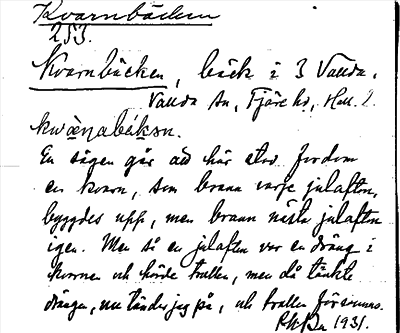 Kvarnbäcken
253.
Kvarnbäcken, bäck i 3 Vallda,
Vallda sn, Fjäre hd, Hall. l.
kwàṇabäkən.
En sägen går att här stod fordom
en kvarn, som brann varje julafton,
byggdes upp, men brann nästa julafton
igen. Men så en julafton var en dräng i
kvarnen och hörde trallen, men då tänkte
drängen, nu tänder jag på, och trallen försvunno.
1931.